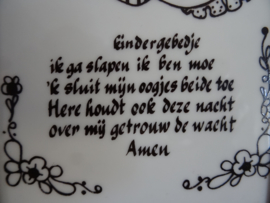 kindergebedje
ik ga slapen ik ben moe
'k sluit mijn oogjes beide toe
Here houdt ook deze nacht
over mij getrouw de wacht
Amen